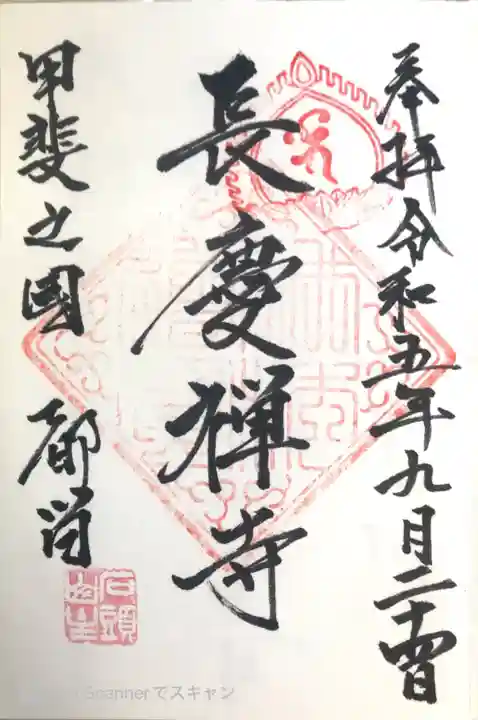 奉拝 令和五年九月二十四日
長慶禅寺
甲斐之國 都留
Scannerでスキャン